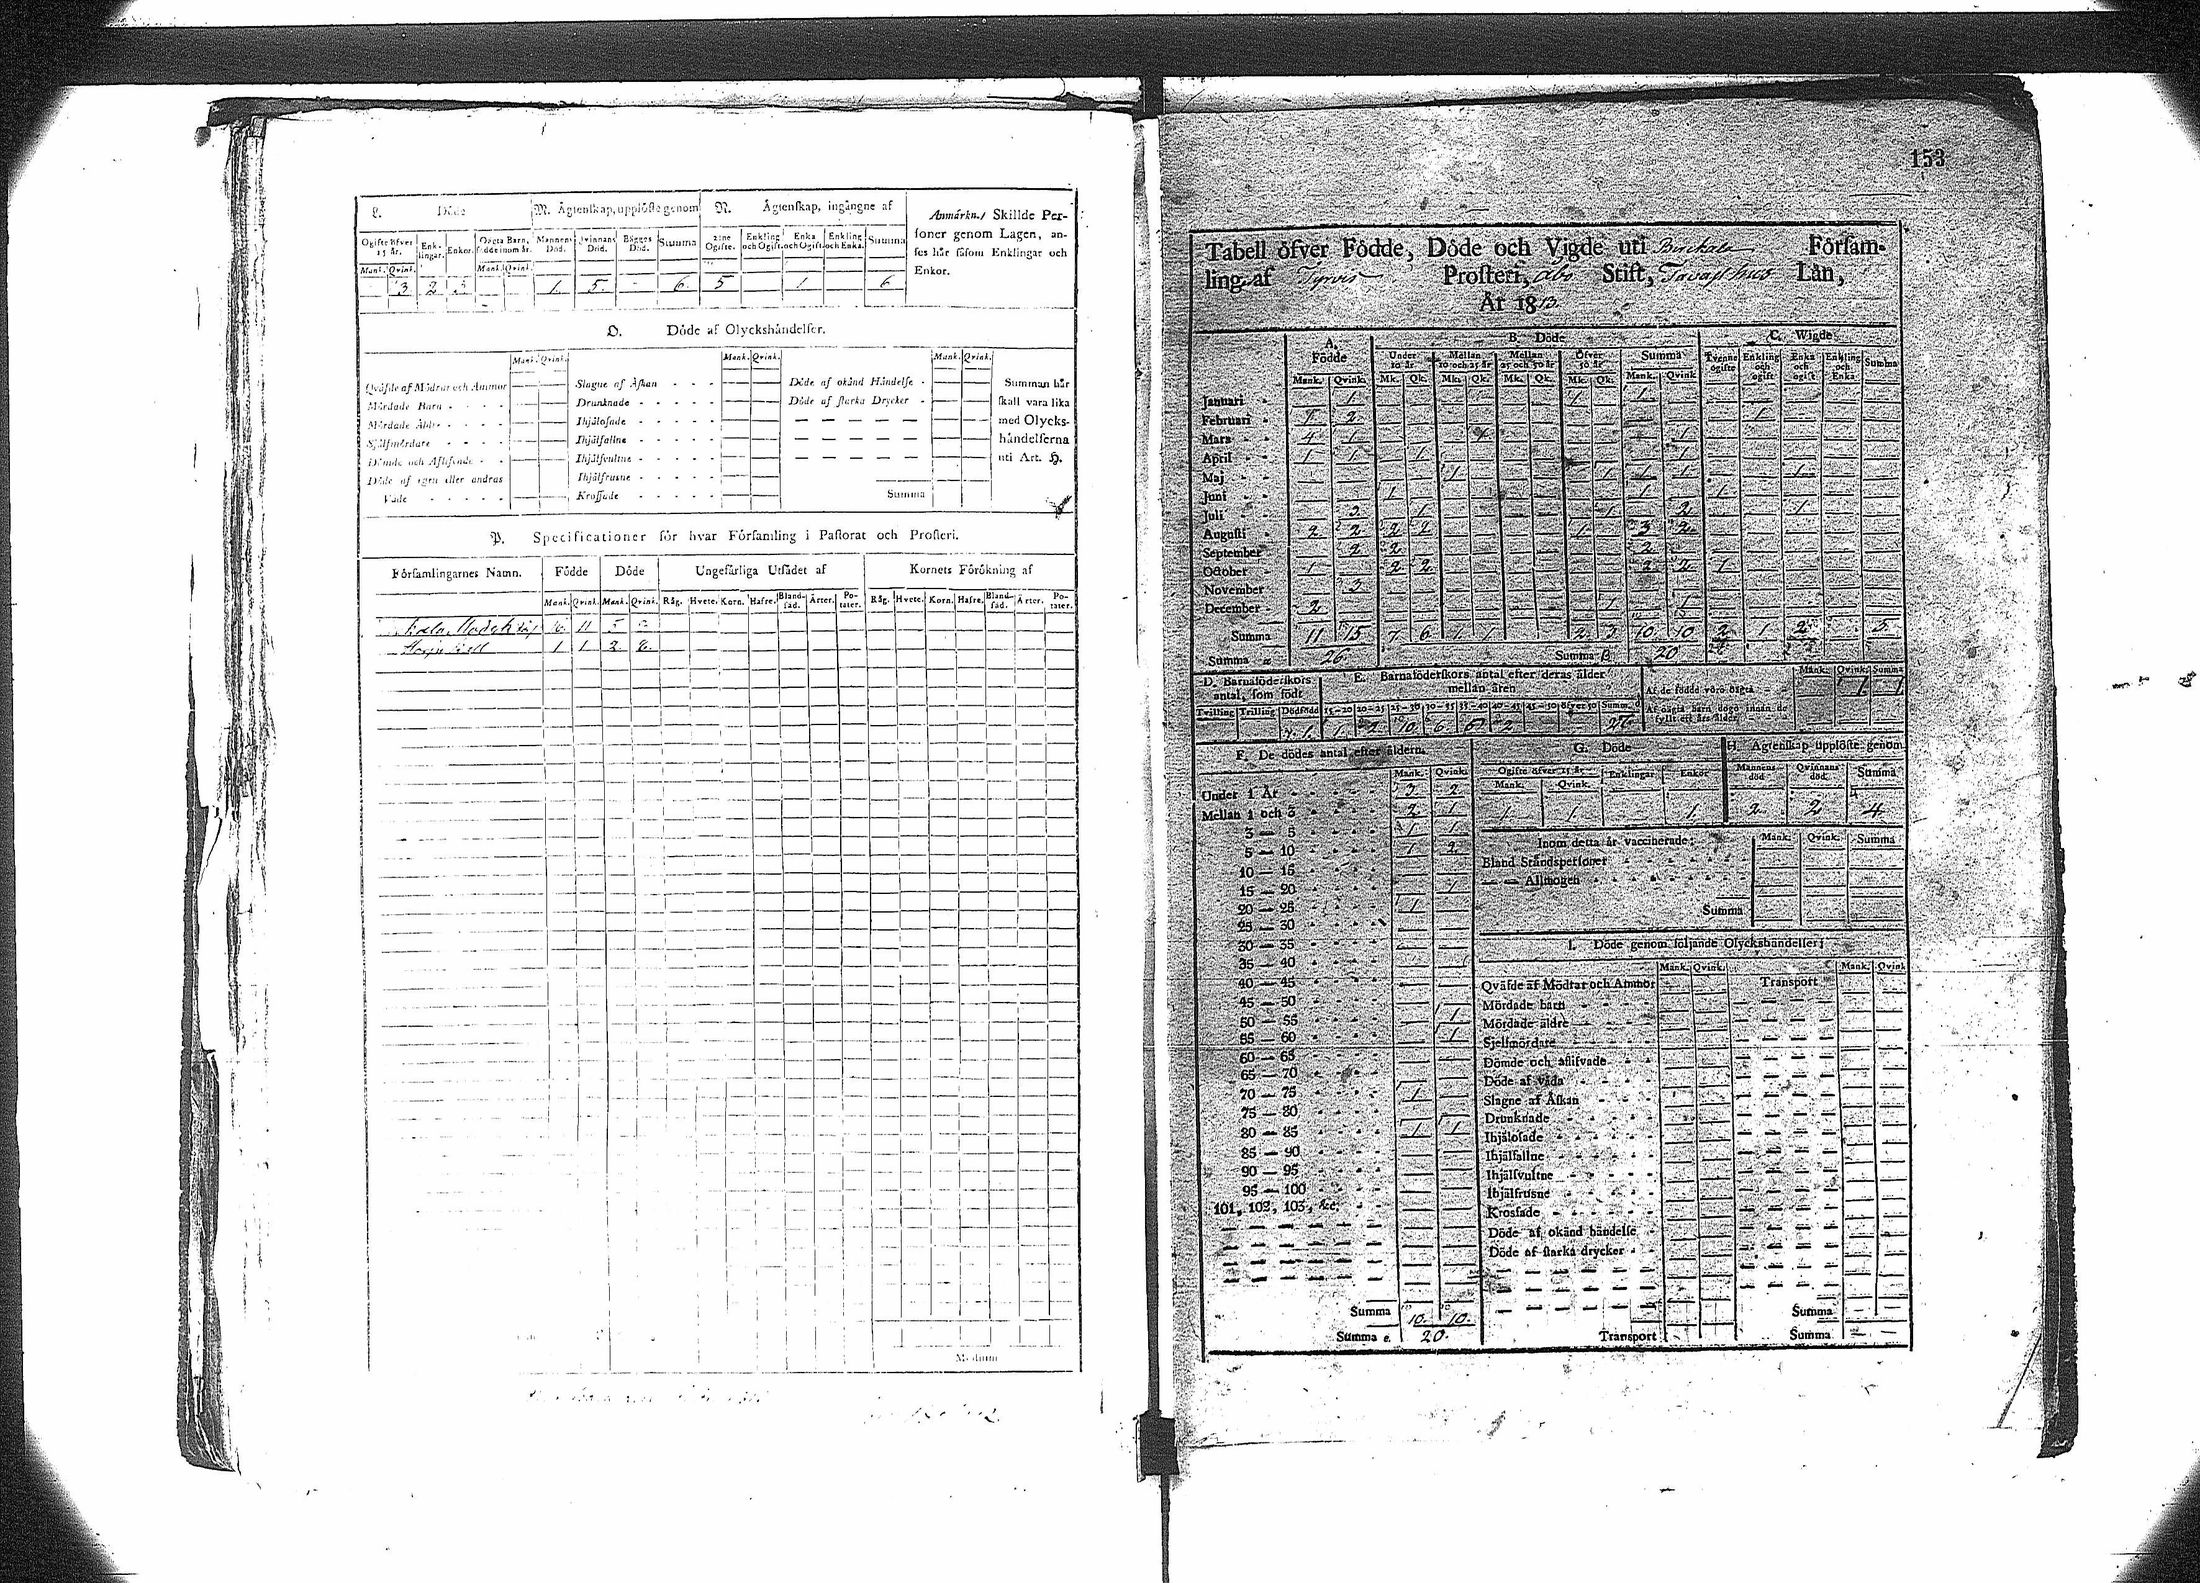 L. Döde M. Ägtenskap, upplöste genom N. Ägtenskap, ingångne af Anmärkn. Skillde Per-
soner genom Lagen, an-
ses här såsom Enklingar och
Enkor.
Ogifte öfver 15 år. Enk-lingar. Enkor. Oägta Barn, födde inom år. Mannens Död. Qvinnans Död. Bägges Död. Summa Ogifte. Enkling och Ogift. Enka och Ogift. Enkling och Enka. Summa
Mank. Qvink. Mank. Qvink.
3 2 5 1 5 6 5 1 6
O. Döde af Olyckshändelser.
Mank. Qvink. Mank. Qvink. Mank. Qvink.
Qväfde af Mödrar och Ammor Slagne af Åskan Döde af okänd Händelse Summan här
Mördade Barn Drunknade Döde af starka Drycker skall vara lika
Mördade Äldre Ihjälosade med Olycks-
Sjelfmördare Ihjälfallne händelserna
Dömde och Aflifvade Ihjälsvultne uti Art. H.
Döde af egen eller andras Ihjälfrusne
Våde Krossade Summa
P. Specificationer för hvar Församling i Pastorat och Prosteri.
Församlingarnes Namn. Födde Döde Ungefärliga Utsädet af Kornets Förökning af
Mank. Qvink. Mank. Qvink. Råg. Hvete. Korn. Hafre. Bland-säd. Ärter. Po-täter. Råg. Hvete. Korn. Hafre. Bland-säd. Ärter. Po-täter.
11 5
1 1 2
Medium
153
Tabell öfver Födde, Döde och Vigde uti Församling af Prosteri, Åbo Stift, Tavastehus Län,
År 1813.
A. Födde B. Döde C. Wigde
Under 10 år Mellan 10 och 25 år Mellan 25 och 50 år Öfver 50 år Summa Tvenne ogifte Enkling och ogift Enka och ogift Enkling och Enka Summa
Mank. Qvink. Mk. Qk. Mk. Qk. Mk. Qk. Mk. Qk. Mank. Qvink.
Januari 1 1 1
Februari 1 2 1
Mars 4 1 1 1
April 1 1 1 1
Maj 1 1 1 1 1
Juni 1 1 1
Juli 3 1 1 2 1
Augusti 2 2 2 2 1 3 2
September 2 2 2
October 1 2 2 2 2 1
November 3
December 2 1 1
Summa 11 15 7 6 1 1 2 3 10 10 2 1 2 5
Summa a 26 Summa B 20
D. Barnaföderskors antal, som födt E. Barnaföderskors antal efter deras ålder mellan åren Mank. Qvink. Summa
Af de födde voro oägta 1 1
Tvilling Trilling Dödfödd 15-20 20-25 25-30 30-35 35-40 40-45 45-50 öfver 50 Summa Af oägta barn dogo innan de fyllt ett års ålder
1 1 10 6 2 26
F. De dödes antal efter åldern. G. Döde H. Ägtenskap upplöste genom
Mank. Qvink. Ogifte öfver 15 år Enklingar Enkor Mannens död Qvinnans död Summa
Under 1 År 3 2 Mank. Qvink.
Mellan 1 och 3 2 1 1 1 1 2 2 4
3 — 5 1 1
5 — 10 1 2 Inom detta år vaccinerade: Mank. Qvink. Summa
10 — 15 Bland Ståndspersoner
15 — 20 1 Allmogen
20 — 25 1 Summa
25 — 30
30 — 35 I. Döde genom följande Olyckshändelser;
35 — 40 Mank. Qvink. Mank. Qvink
40 — 45 Qväfde af Mödrar och Ammor Transport
45 — 50 Mördade barn
50 — 55 1 Mördade äldre
55 — 60 1 Sjelfmördare
60 — 65 Dömde och aflifvade
65 — 70 Döde af våda
70 — 75 1 Slagne af Åskan
75 — 80 Drunknade
80 — 85 1 1 Ihjälosade
85 — 90 Ihjälfallne
90 — 95 Ihjälsvultne
95 — 100 Ihjälfrusne
101, 102, 103, &c. Krossade
Döde af okänd händelse
Döde af starka drycker
Summa 10. 10. Summa
Summa e. 20. Transport Summa